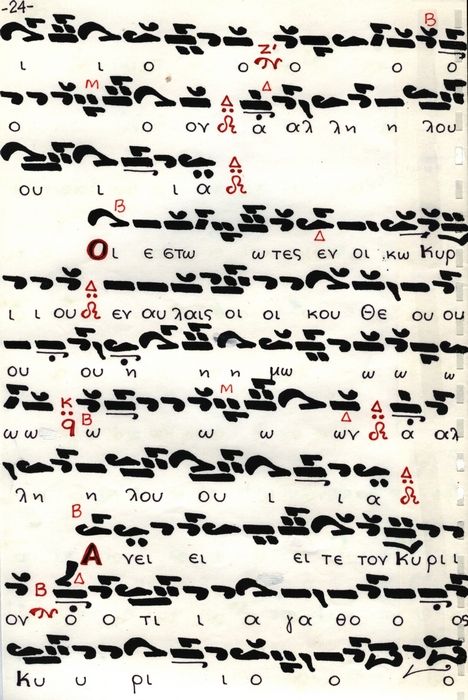 -24-
Β
ι ι ο ο Ζ' ο ο ο
Μ Δ
ο ο ον Δ α αλ λη η λου
ου ι ι α Δ
Β
Οι ε στω ω τες εν οι κω Κυρ
Δ
ι ι ου Δ εν αυ λαις οι οι κου Θε ου ου
ου ου η η η μω ω ω ω
Μ
ω ω Κ q Β ω ω ω ων Δ α αλ
Δ
λη η λου ου ι ι α Δ
Β
Α νει ει ει τε τον Κυ ρι ι
Δ
ον Β ο ο τι ι α γα θο ο ος
Κυ υ ρι ι ο ο ο